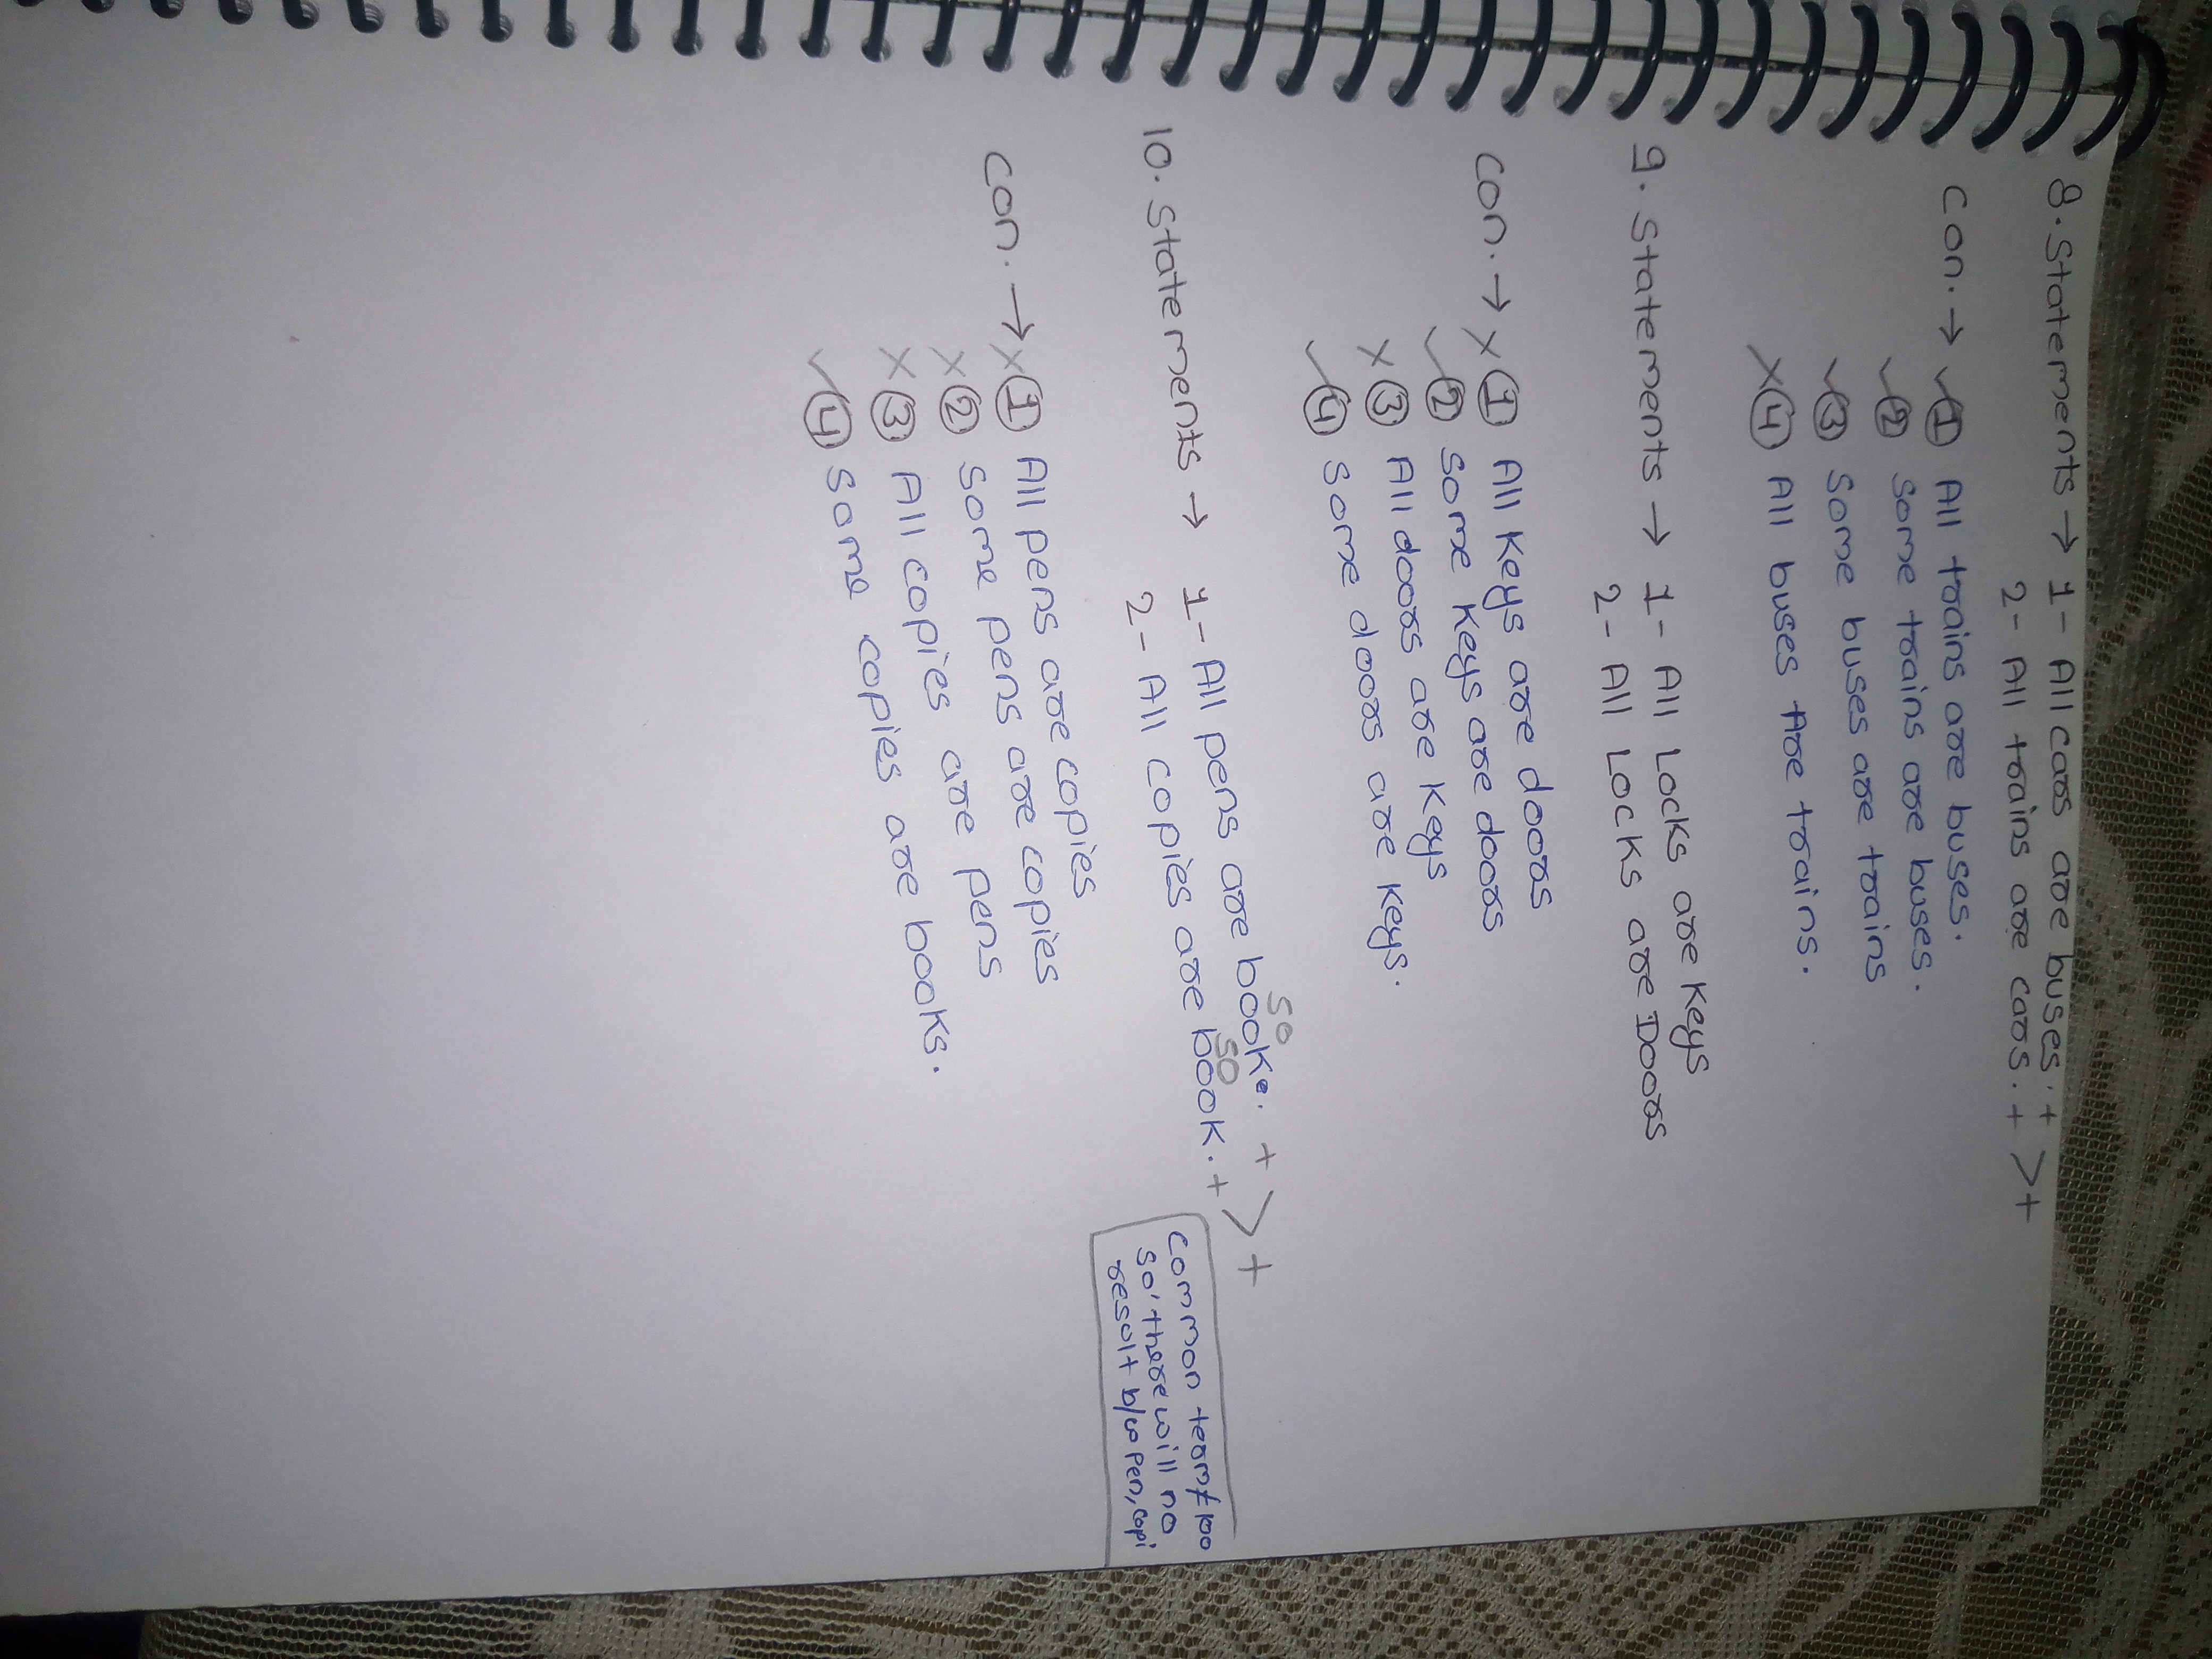 8. Statements → 1 - All cars are buses. + > +
2 - All trains are cars. +
Con. → ✓ ① All trains are buses.
✓ ② Some trains are buses.
✓ ③ Some buses are trains
× ④ All buses Are trains.
9. Statements → 1 - All Locks are Keys
2 - All Locks are Doors
Con. → × ① All Keys are doors
✓ ② Some Keys are doors
× ③ All doors are Keys
✓ ④ Some doors are Keys.
50
10. Statements → 1 - All pens are booke. + > +
50
2 - All copies are book. +
Common term ≠ 100
so' there will no
result b/w pen, copi
Con. → × ① All pens are copies
× ② Some pens are copies
× ③ All copies are pens
✓ ④ Some copies are books.